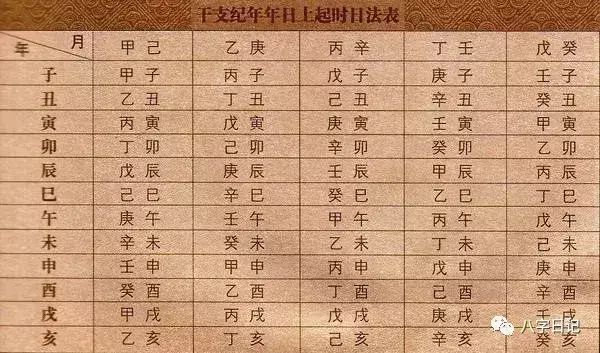 干支纪年年日上起时日法表
年 月 甲己 乙庚 丙辛 丁壬 戊癸
子 甲子 丙子 戊子 庚子 壬子
丑 乙丑 丁丑 己丑 辛丑 癸丑
寅 丙寅 戊寅 庚寅 壬寅 甲寅
卯 丁卯 己卯 辛卯 癸卯 乙卯
辰 戊辰 庚辰 壬辰 甲辰 丙辰
巳 己巳 辛巳 癸巳 乙巳 丁巳
午 庚午 壬午 甲午 丙午 戊午
未 辛未 癸未 乙未 丁未 己未
申 壬申 甲申 丙申 戊申 庚申
酉 癸酉 乙酉 丁酉 己酉 辛酉
戌 甲戌 丙戌 戊戌 庚戌 壬戌
亥 乙亥 丁亥 己亥 辛亥 亥
八字日记